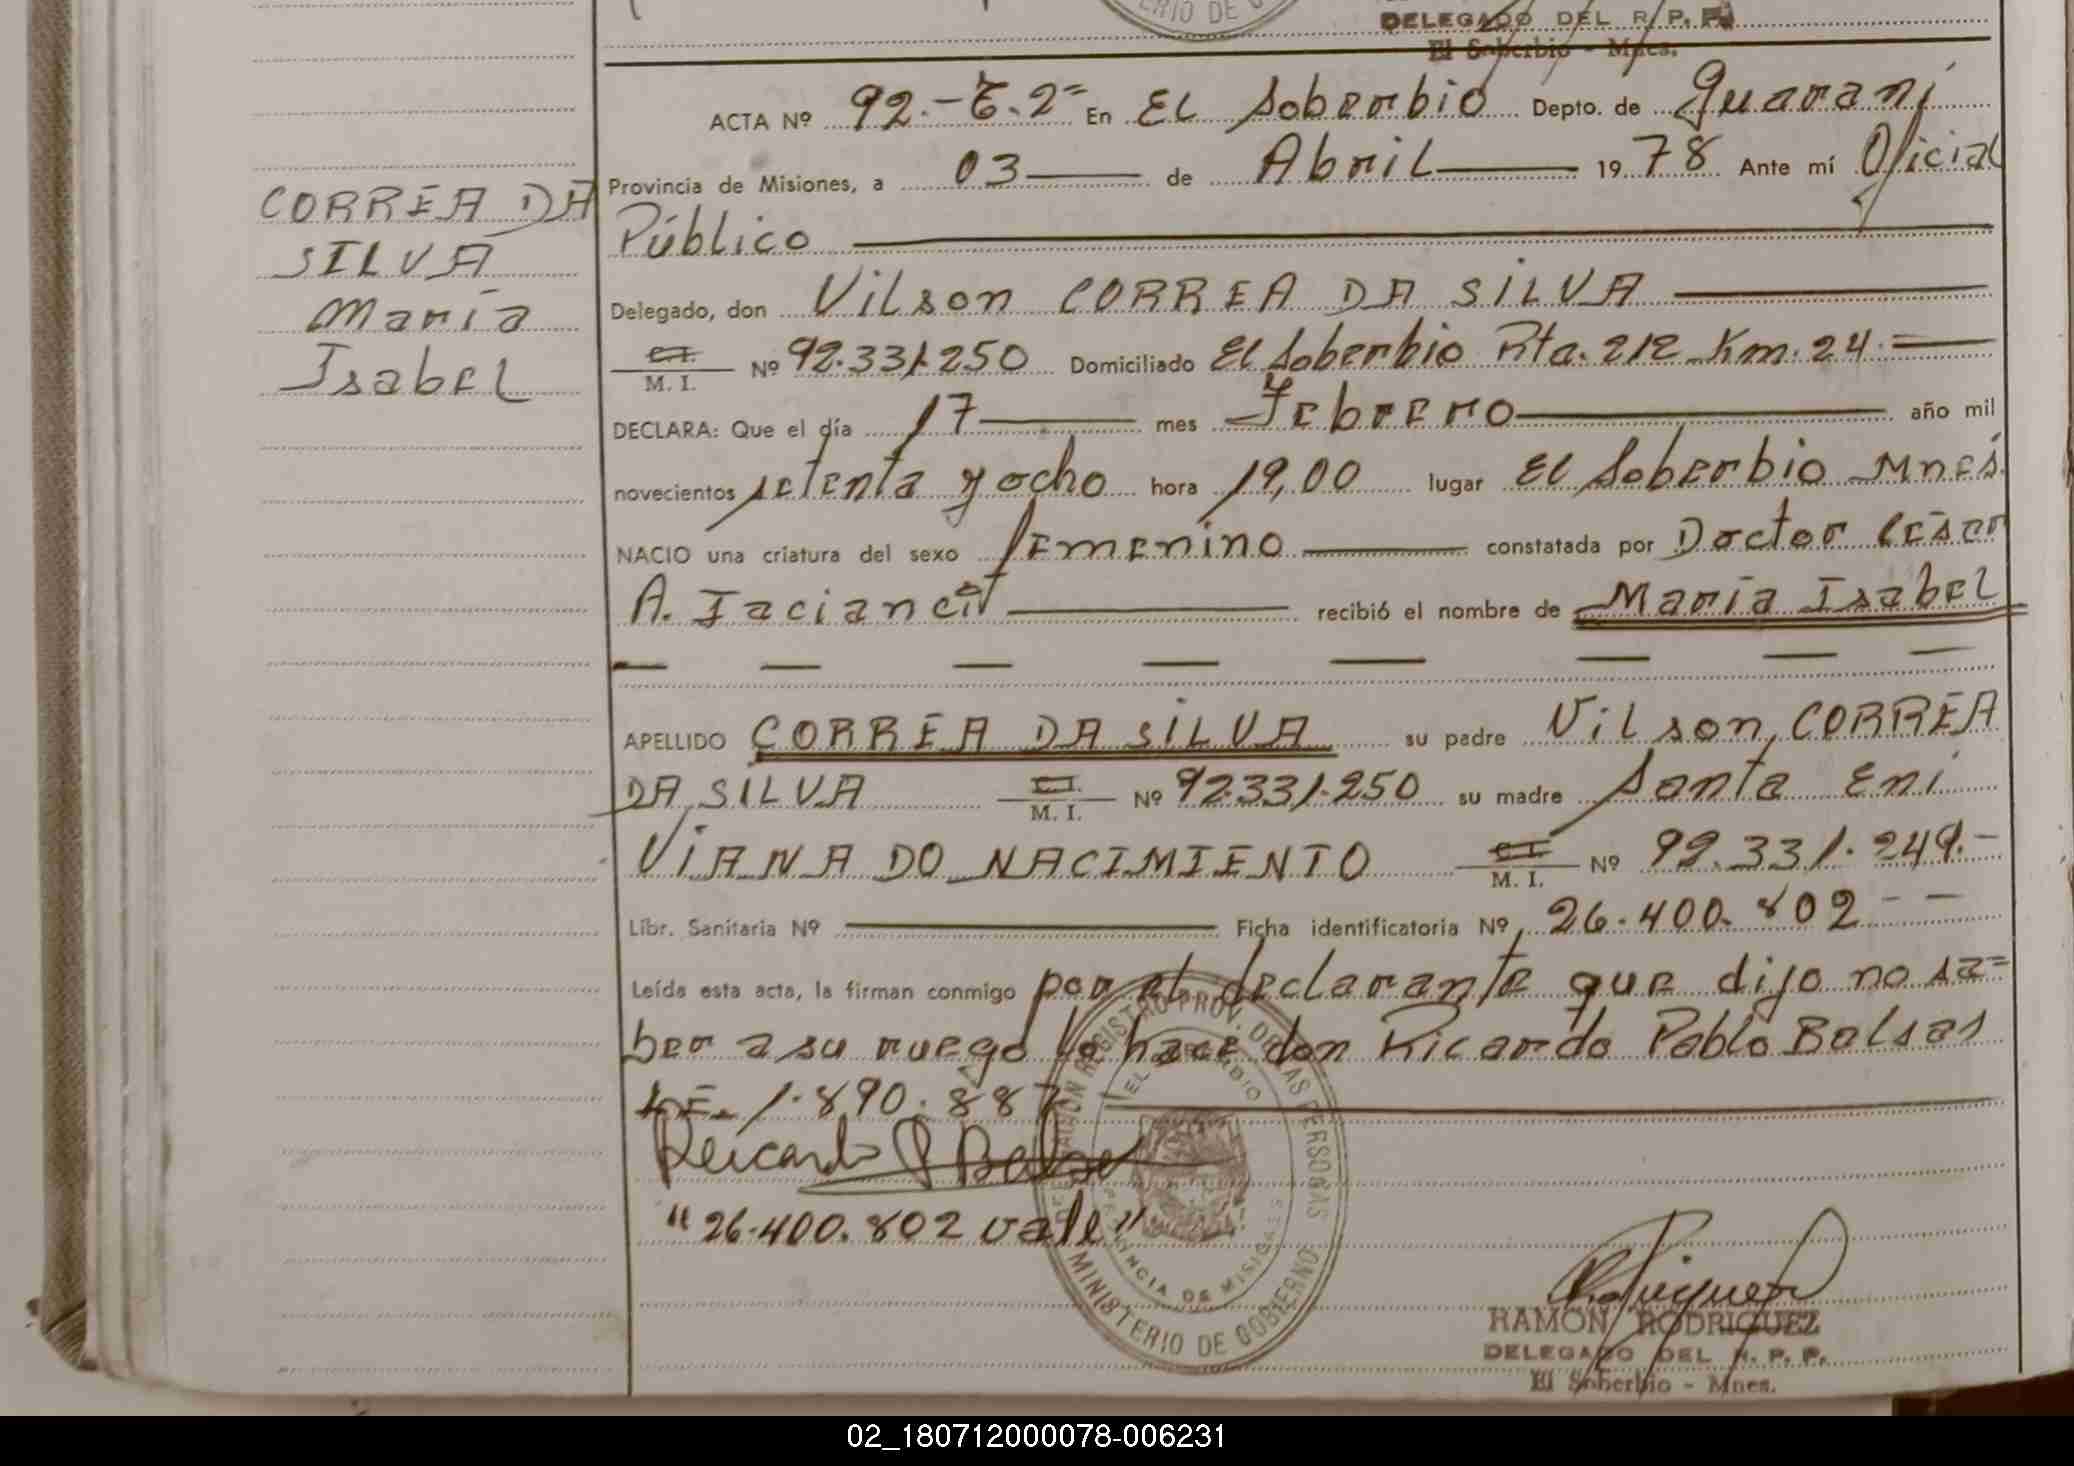 ERIO DE G
DELEGADO DEL R. P. P.
El Soberbio - Mnes.
ACTA Nº 92.- T.2= En El Soberbio Depto. de Guaraní
Provincia de Misiones, a 03 de Abril 1978 Ante mí Oficial
Público
Delegado, don Vilson CORREA DA SILVA
C.I. M. I. Nº 92.331.250 Domiciliado El Soberbio Rta. 212 Km. 24
DECLARA: Que el día 17 mes Febrero año mil
novecientos setenta y ocho hora 19,00 lugar El Soberbio Mnes.
NACIO una criatura del sexo femenino constatada por Doctor César
A. recibió el nombre de María Isabel
APELLIDO CORREA DA SILVA su padre Vilson, CORREA
DA SILVA C.I. M. I. Nº 92.331.250 su madre Santa Eni
VIANA DO NACIMIENTO C.I. M. I. Nº 92.331.249.-
Libr. Sanitaria Nº Ficha identificatoria Nº 26.400.802 - -
Leída esta acta, la firman conmigo por el declarante que dijo no sa=
ber a su ruego lo hace don Ricardo Pablo Balsas
L.E. 1.890.887
"26.400.802 vale"
CORREA DA
SILVA
María
Isabel
DELEGACION REGISTRO PROV. DE LAS PERSONAS
EL SOBERBIO
PROVINCIA DE MISIONES
MINISTERIO DE GOBIERNO
RAMON RODRIGUEZ
DELEGADO DEL R. P. P.
El Soberbio - Mnes.
02_180712000078-006231